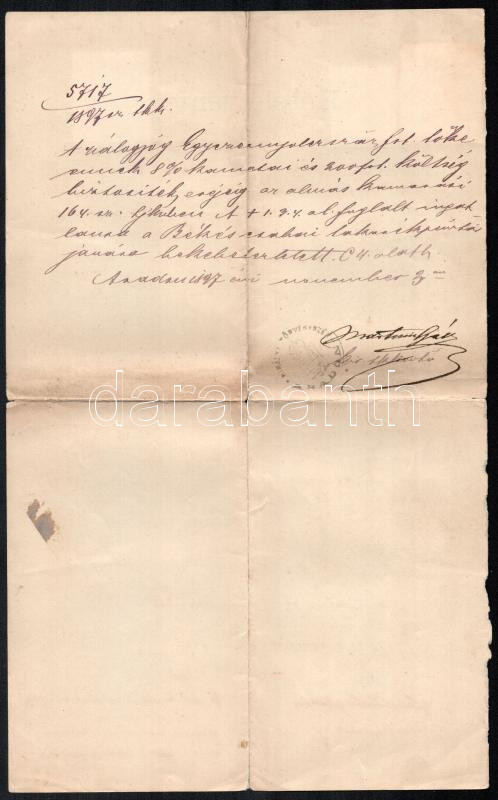 5717
1897 sz. tkk.
A zálogjog Egyezernyolczszáz frt tőke
ennek 8% kamatai és 200 frt költség
biztosíték erejéig az almás kamarási
164. sz. tjkvben A + 1. 2. 4. al. foglalt ingat
lanra a Békés csabai takarékpénztár
javára bekebeleztetett C 4. alatt
Aradon 1897 évi november 2
darabanth